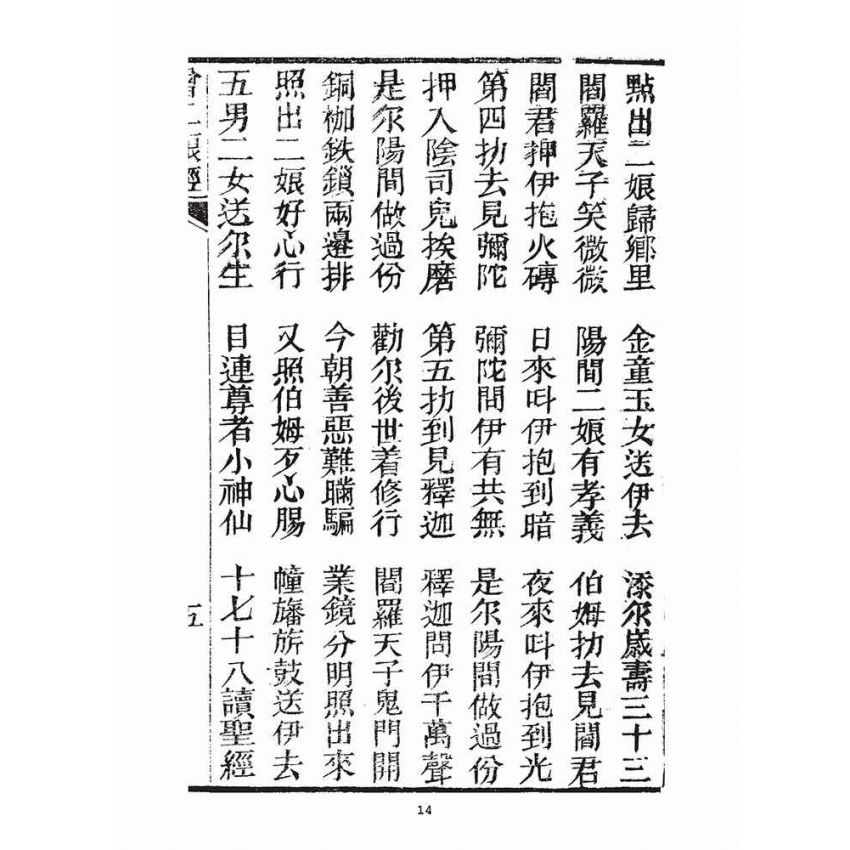 點出二娘歸鄉里 金童玉女送伊去 添尔歲壽三十三
閻羅天子笑微微 陽間二娘有孝義 伯姆抝去見閻君
閻君押伊抱火磚 日來呌伊抱到暗 夜來呌伊抱到光
第四抝去見彌陀 彌陀問伊有共無 是尔陽間做過份
押入陰司鬼挨磨 第五抝到見釋迦 釋迦問伊千萬聲
是尔陽間做過份 勸尔後世着修行 閻羅天子鬼門開
銅枷鉄鎖兩邊排 今朝善惡難瞞騙 業鏡分明照出來
照出二娘好心行 又照伯姆歹心腸 幢旛旂鼓送伊去
五男二女送尔生 目連尊者小神仙 十七十八讀聖經
二娘經
五
14